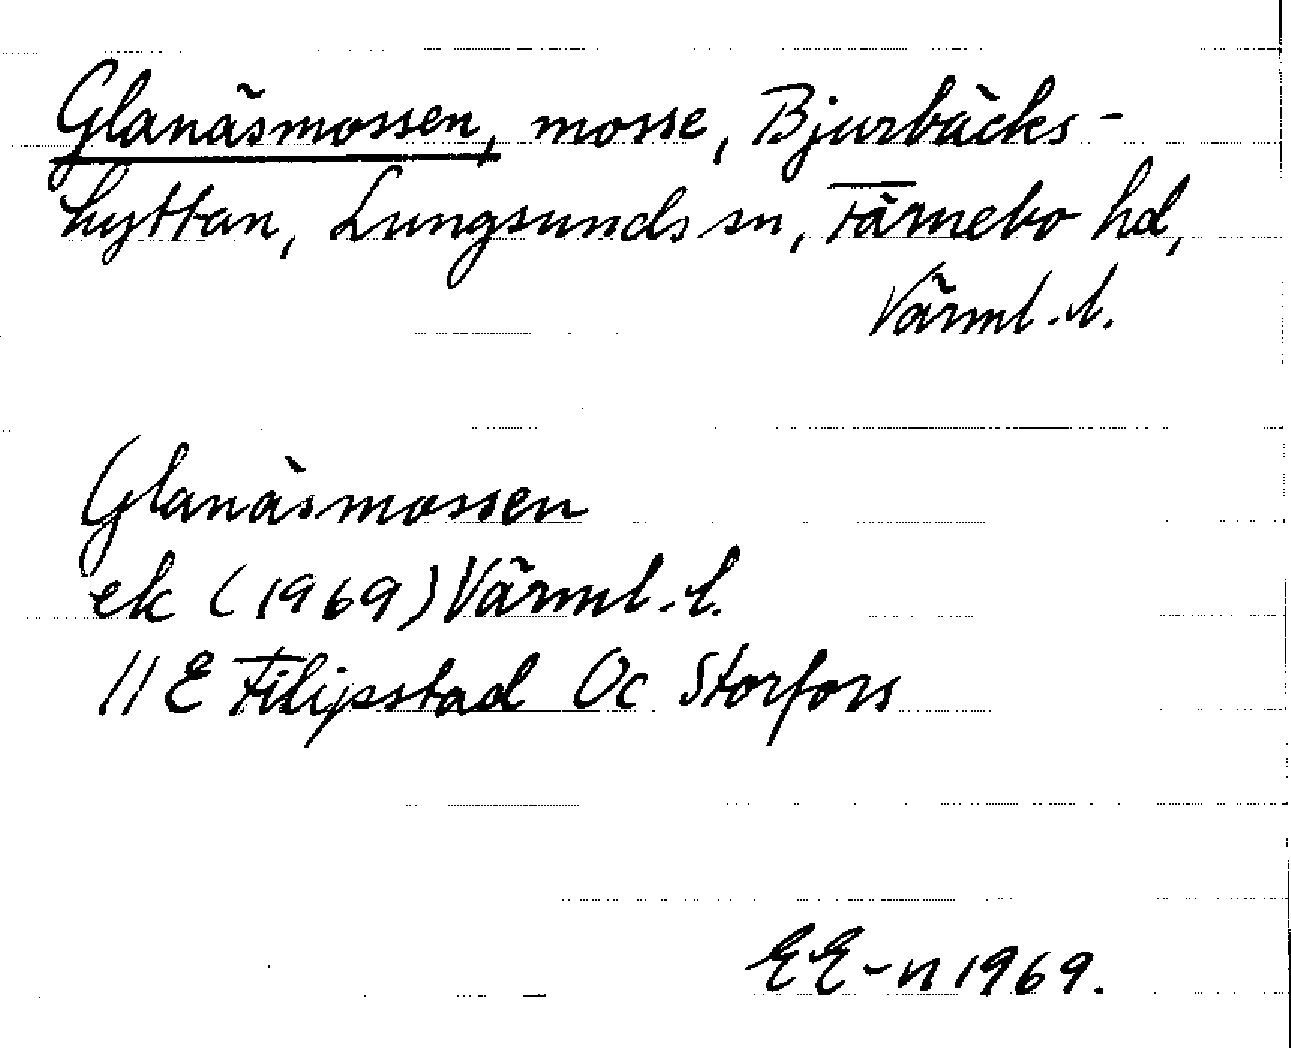 Glanäsmossen, mosse, Bjurbäcks-
hyttan, Lungsunds sn, Färnebo hd,
Värml. l.
Glanäsmossen
ek (1969) Värml. l.
11 E Filipstad Oc Storfors
EE-n 1969.